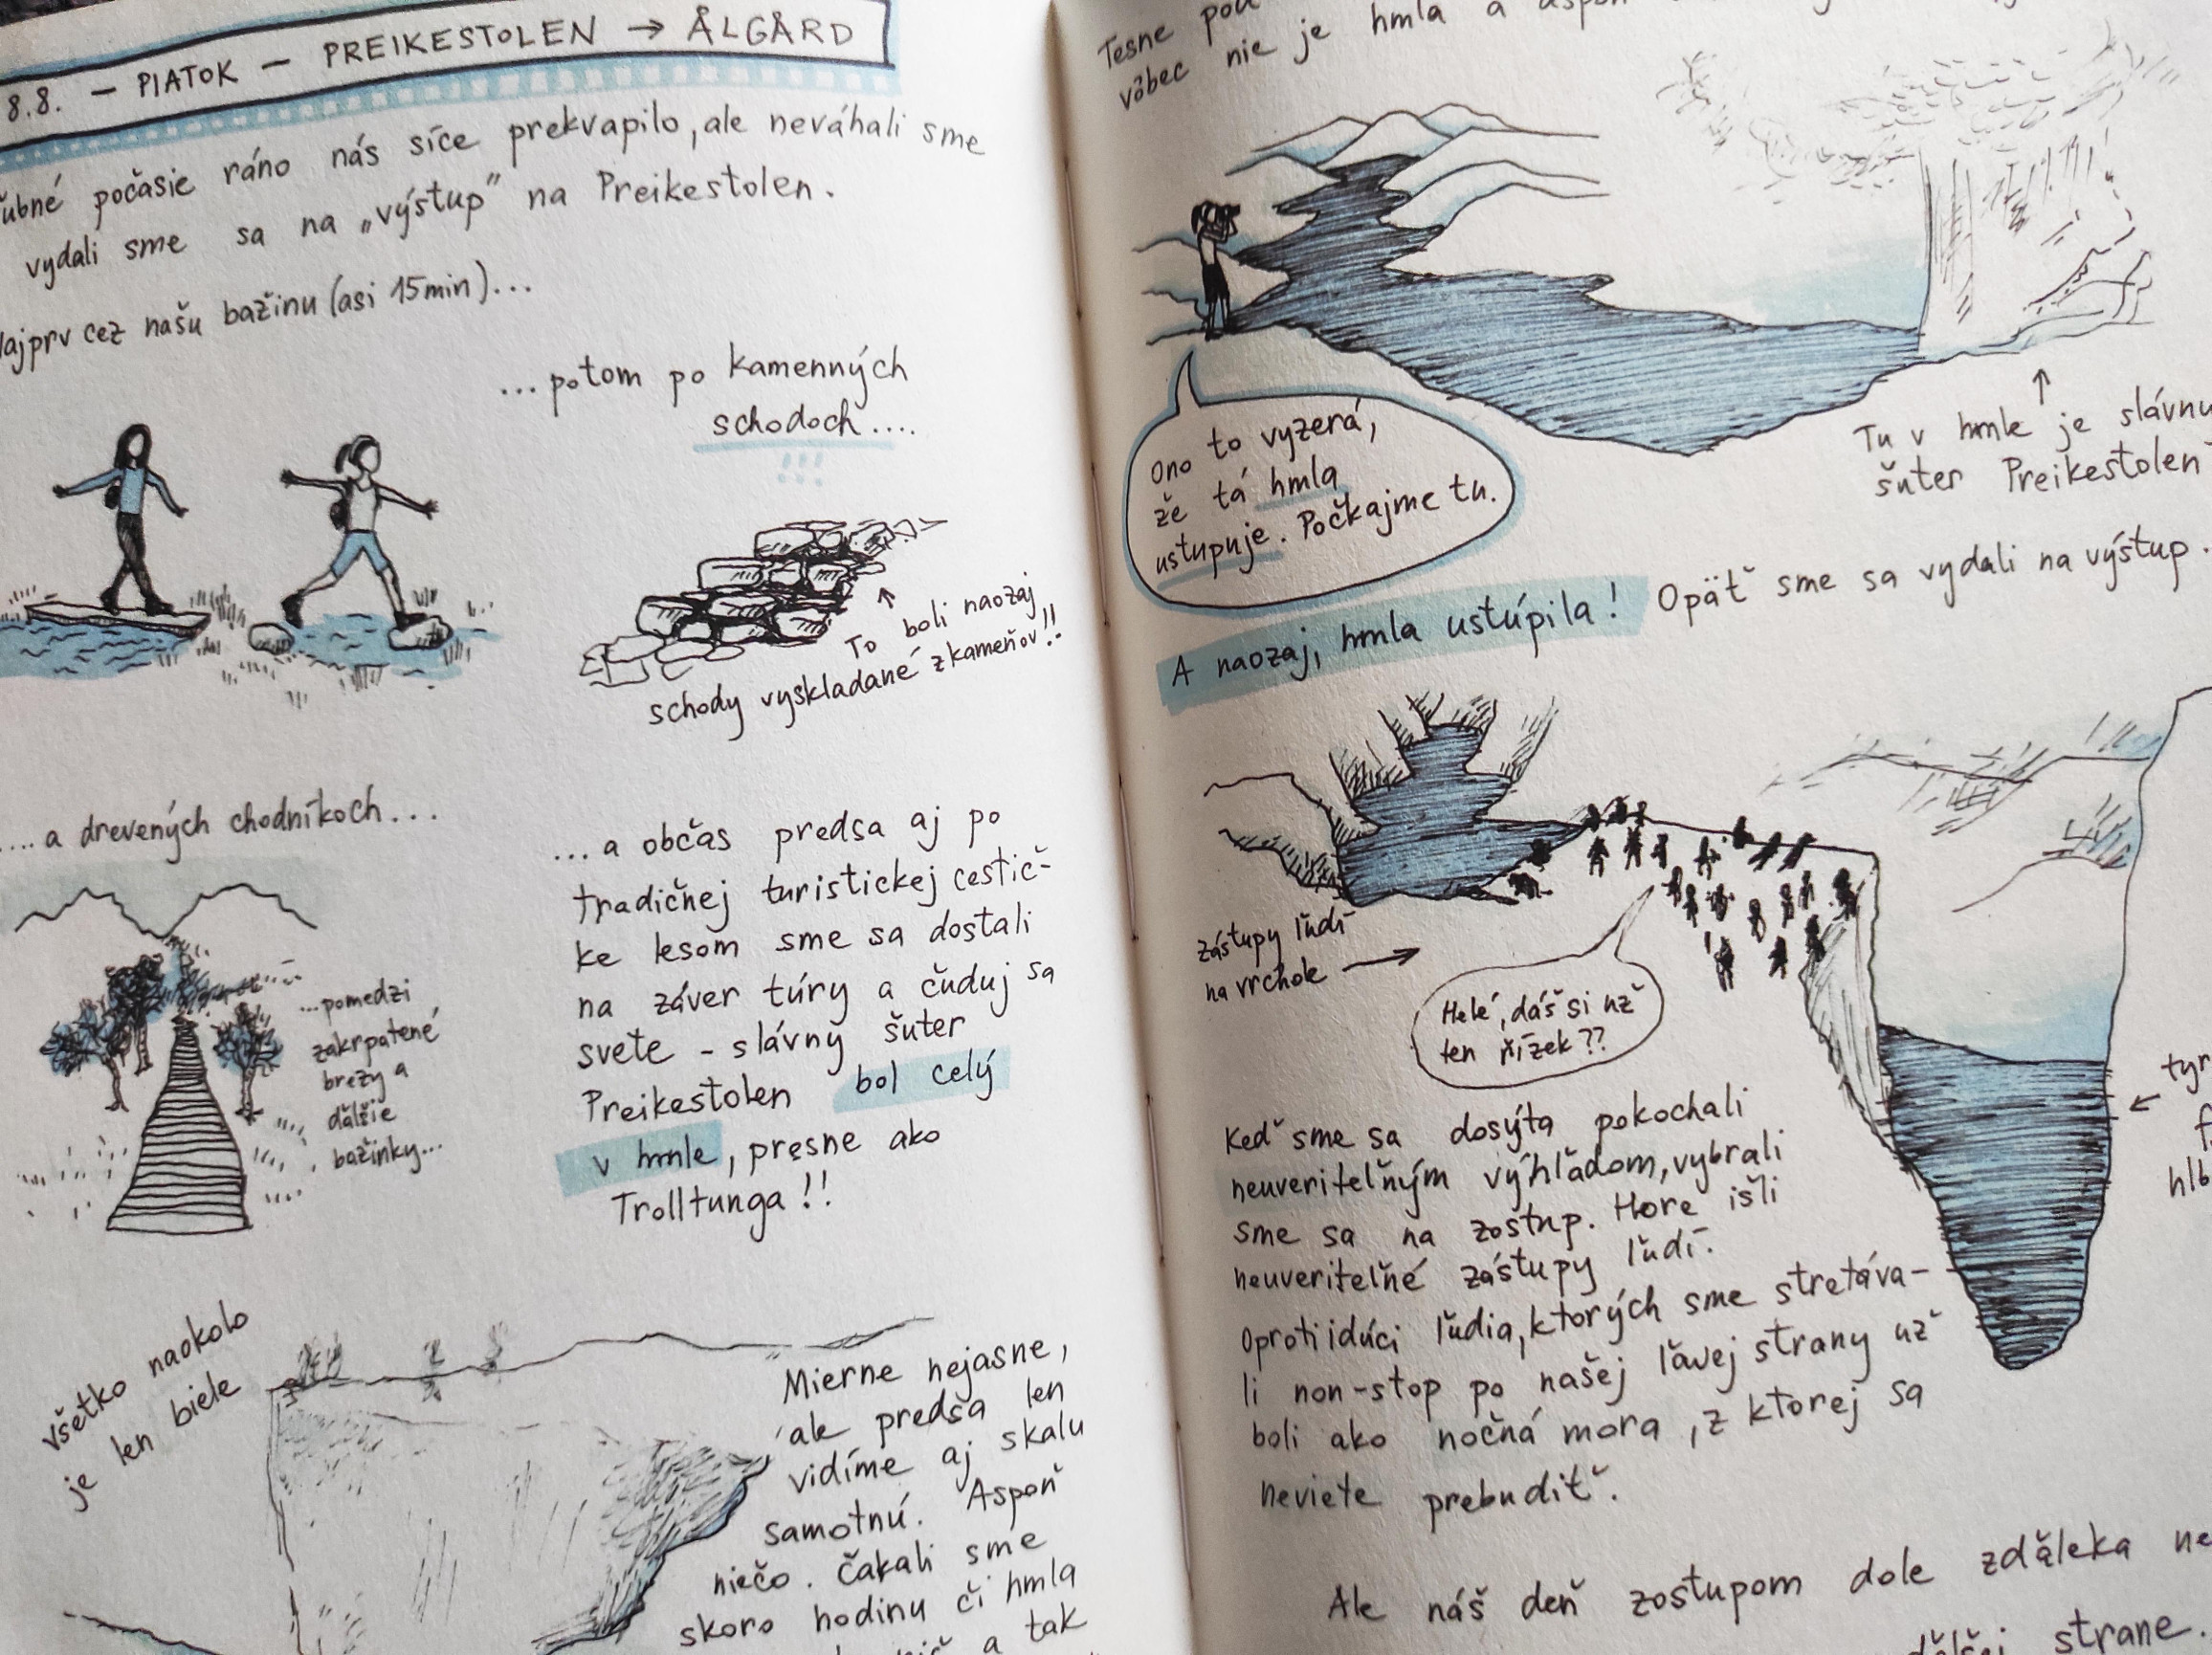 8.8. — PIATOK — PREIKESTOLEN → ÅLGÅRD
počasie ráno nás síce prekvapilo, ale neváhali sme
vydali sme sa na „výstup" na Preikestolen.
cez našu bažinu (asi 15min)...
...potom po kamenných
schodoch....
!!!
To boli naozaj
schody vyskladané z kameňov!!
....a drevených chodníkoch...
...pomedzi
zakrpatené
brezy a
ďalšie
bažinky...
...a občas predsa aj po
tradičnej turistickej cestič-
ke lesom sme sa dostali
na záver túry a čuduj sa
svete - slávny šuter
Preikestolen bol celý
v hmle, presne ako
Trolltunga!!
všetko naokolo
je len biele
Mierne nejasne,
ale predsa len
vidíme aj skalu
samotnú. Aspoň
niečo. Čakali sme
skoro hodinu či hmla
a tak
Tesne
vôbec nie je hmla a
Ono to vyzerá,
že tá hmla
ustupuje. Počkajme tu.
Tu v hmle je
šuter Preikestolen
A naozaj, hmla ustúpila! Opäť sme sa vydali na výstup.
zástupy ľudí
na vrchole
Helé, dáš si už
ten řízek??
Keď sme sa dosýta pokochali
neuveriteľným výhľadom, vybrali
sme sa na zostup. Hore išli
neuveriteľné zástupy ľudí.
Oprotiidúci ľudia, ktorých sme stretáva-
li non-stop po našej ľavej strany už
boli ako nočná mora, z ktorej sa
neviete prebudiť.
Ale náš deň zostupom dole zďaleka
strane.